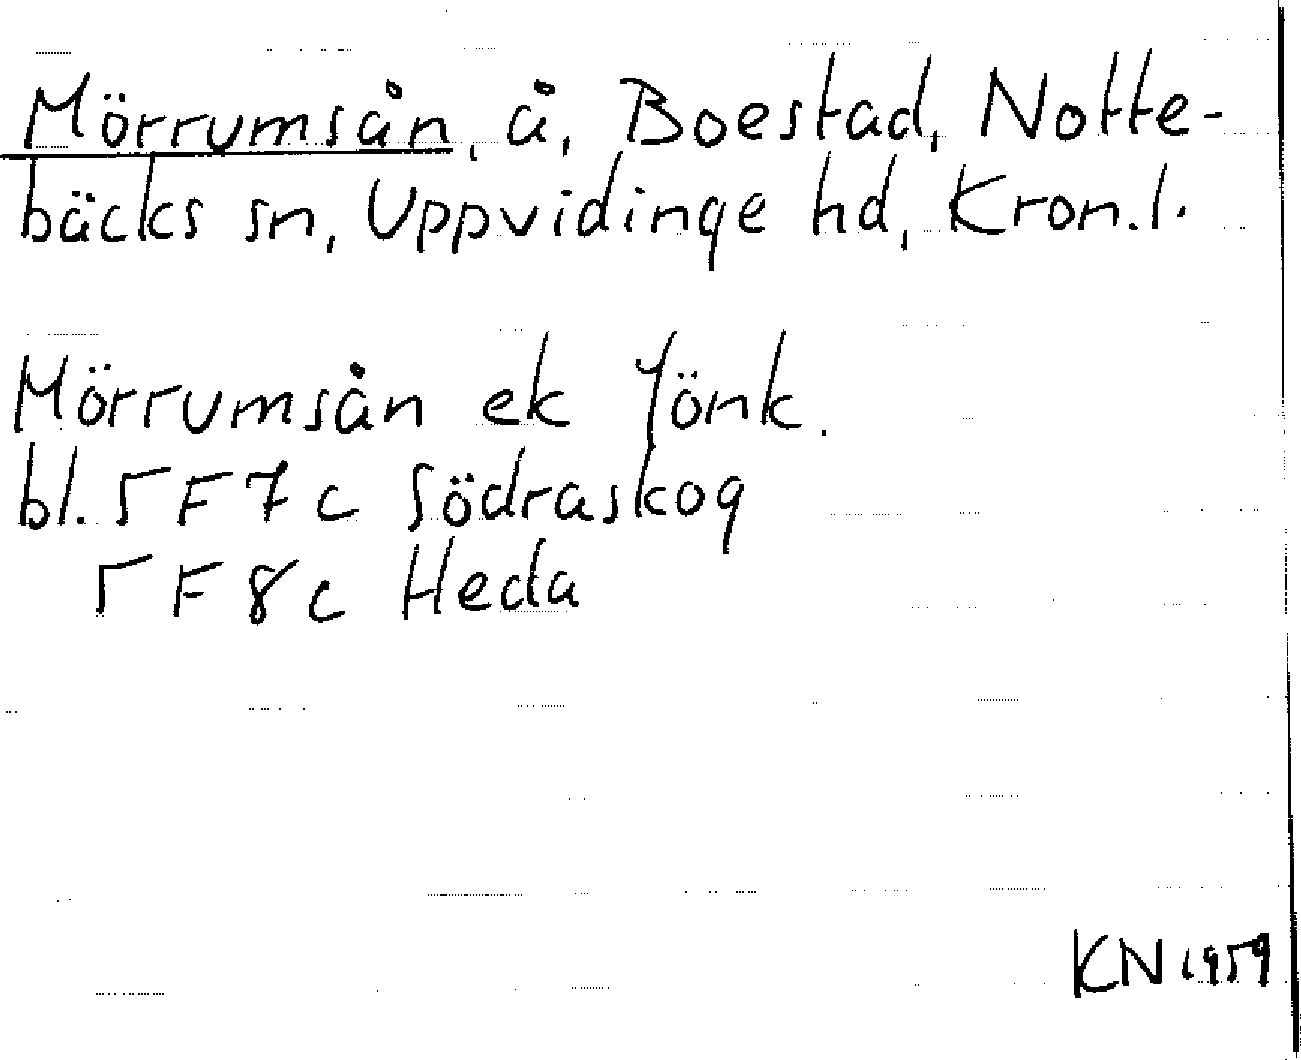 Mörrumsån, å, Boestad, Notte-
bäcks sn, Uppvidinge hd, Kron.l.
Mörrumsån ek Jönk.
bl. 5F7c Södraskog
5F8c Heda
KN 1959